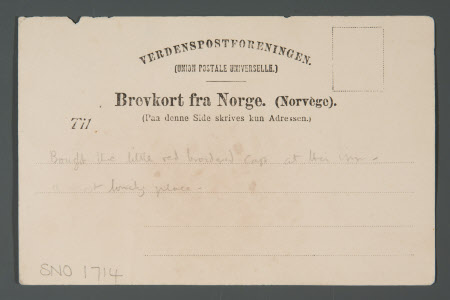 VERDENSPOSTFORENINGEN.
(UNION POSTALE UNIVERSELLE.)
Brevkort fra Norge. (Norvège).
(Paa denne Side skrives kun Adressen.)
Til
Bought the little red cap at this inn -
a most lovely place -
SNO 1714